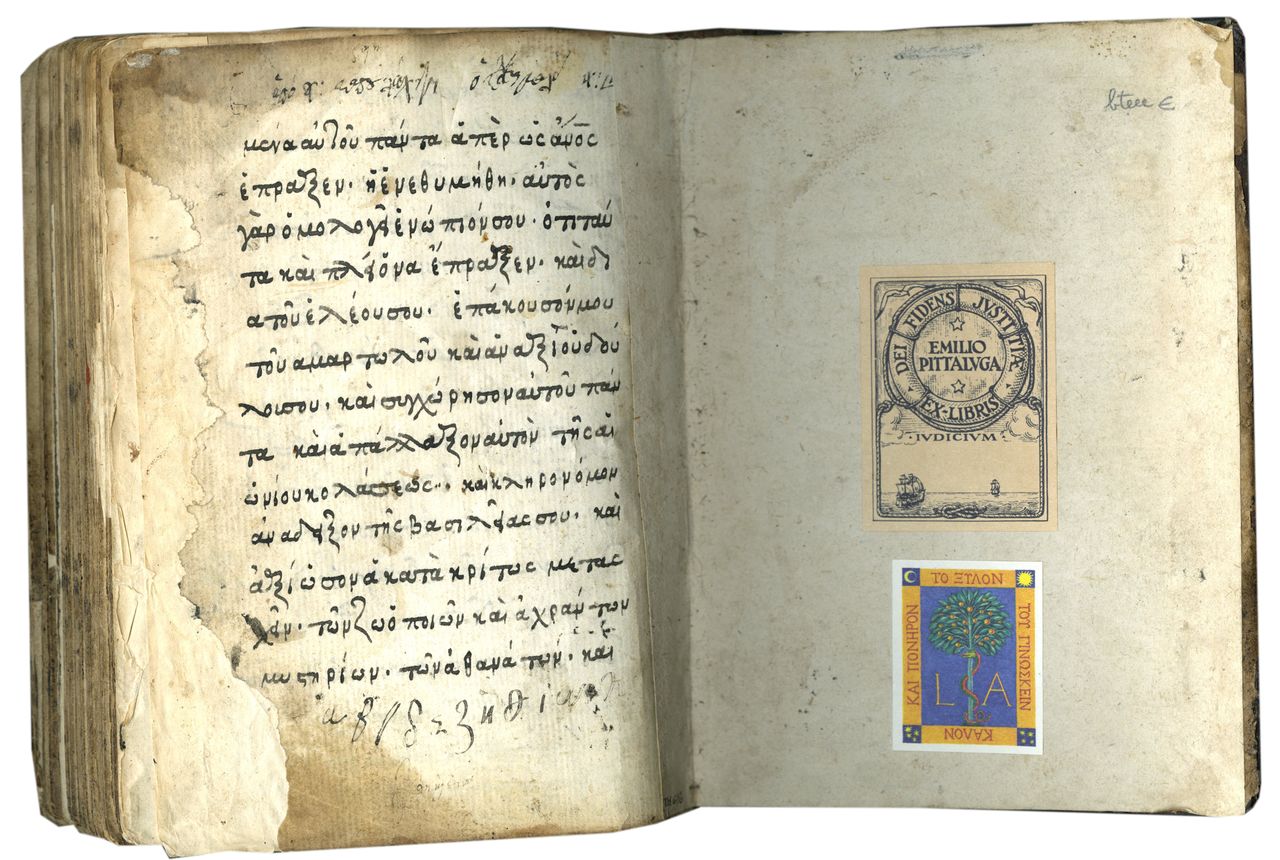 μενα αὐτοῦ πάντα ἅπερ ὡς ἄνος
ἔπραξεν· ἢ ἐνεθυμήθη· αὐτὸς
γὰρ ὁμολογεῖ ἐνώπιόν σου· ὅτι ταύ
τα καὶ πλείονα ἔπραξεν· καὶ δι
α τοῦ ἐλέου σου· ἐπάκουσόν μου
τοῦ αμαρτωλοῦ καὶ ἀναξίου δού
λοι σου· καὶ συγχώρησον αυτοῦ πάν
τα καὶ ἀπάλλαξον αὐτὸν τῆς αἰ
ωνίου κολάσεως· καὶ κληρονόμον
ἀνάδειξον τῆς βασιλείας σου· καὶ
ἀξίωσον ἀκατακρίτως μετασ
χεῖν· τῶν ζωοποιῶν καὶ ἀχράντων
μυστηρίων· τῶν ἀθανάτων· καὶ
α β γ δ ε ζ η θ ι
DEI FIDENS JVSTITIÆ
EMILIO
PITTALVGA
EX-LIBRIS
·IVDICIVM·
ΤΟ ΞΥΛΟΝ
ΤΟΥ ΓΙΝΩΣΚΕΙΝ
ΚΑΛΟΝ
ΚΑΙ ΠΟΝΗΡΟΝ
L A